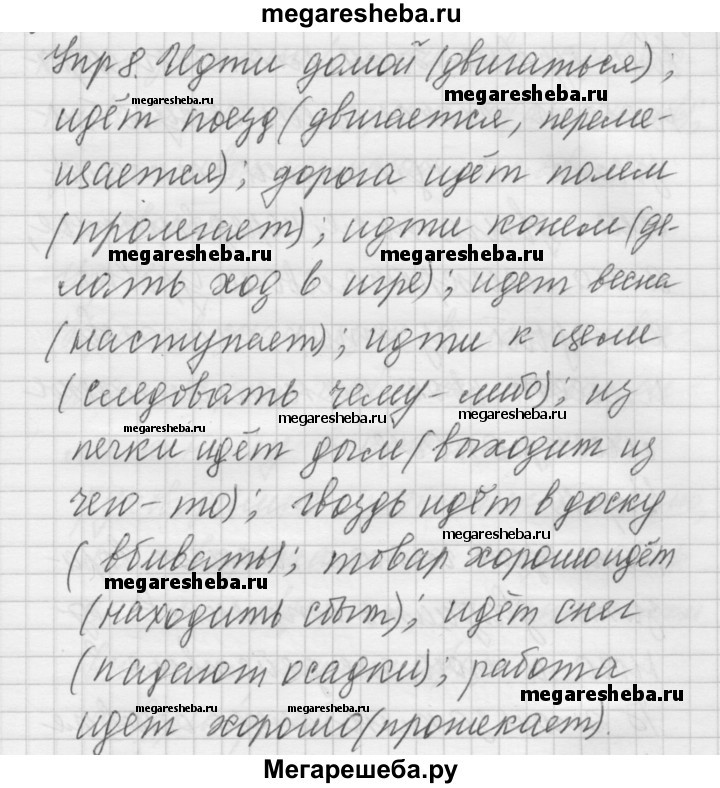 megaresheba.ru
Упр 8. Идти домой (двигаться);
megaresheba.ru megaresheba.ru
идёт поезд (двигается, переме-
щается); дорога идёт полем
(пролегает); идти конем (де-
megaresheba.ru megaresheba.ru
лать ход в игре); идет весна
(наступает); идти к цели
(следовать чему-либо); из
megaresheba.ru megaresheba.ru megaresheba.ru
печки идёт дым (выходит из
чего-то); гвоздь идёт в доску
megaresheba.ru
(вбивать); товар хорошо идёт
megaresheba.ru
(находить сбыт); идёт снег
(падают осадки); работа
megaresheba.ru megaresheba.ru megaresheba.ru
идет хорошо (протекает).
Мегарешеба.ру